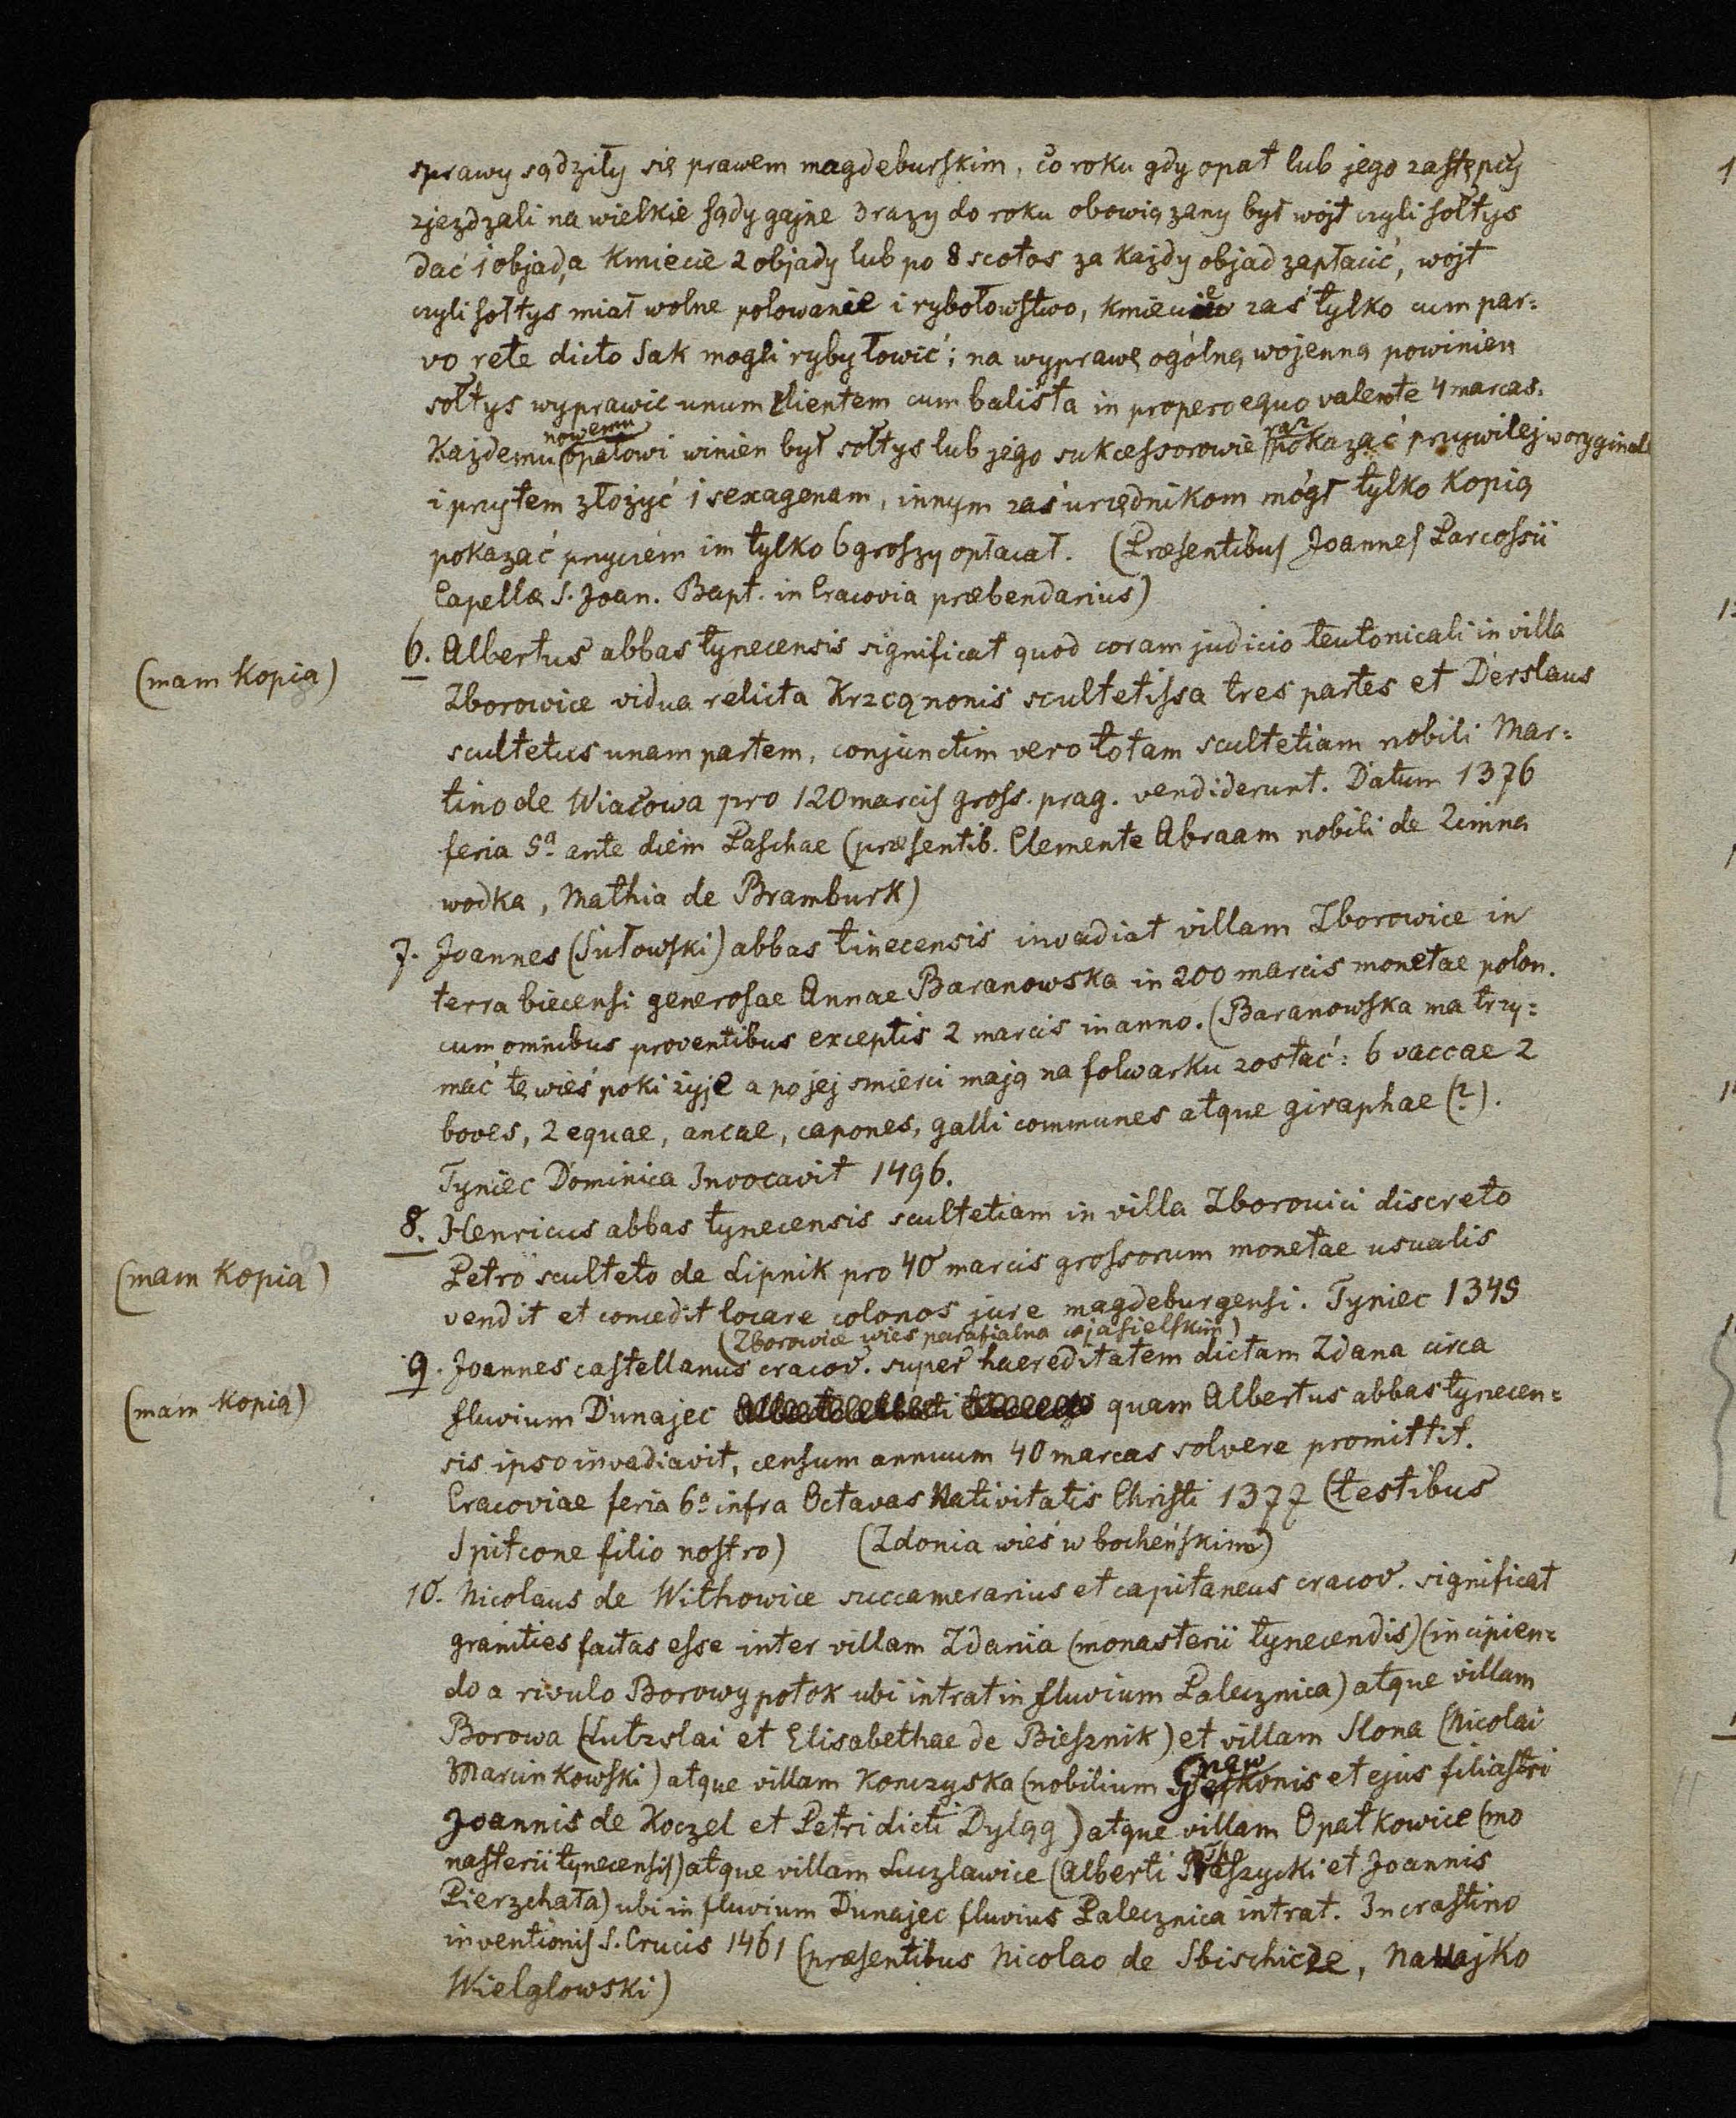 sprawy sądziły się prawem magdeburskim, co roku gdy opat lub jego zastępcy
zjezdzali na wielkie sądy gajne 3 razy do roku obowiązany był wojt czyli sołtys
dać 1 objad, a kmiecie 2 objady lub po 8 scotos za każdy objad zapłacić, wojt
czyli sołtys miał wolne polowanie i rybołowstwo, kmiecie zaś tylko cum par=
vo rete dicto Sak mogli ryby łowić; na wyprawę ogólną wojenną powinien
sołtys wyprawić unum clientem cum balista in propero equo valente 4 marcas.
Każdemu nowemu opatowi winien był sołtys lub jego sukcessorowie raz pokazać przywilej w oryginale
i przytem złożyć 1 sexagenam, innym zaś urzędnikom mógł tylko kopią
pokazać przyczem im tylko 6 groszy opłacał. (Præsentibus Joannes Parcossii
Capellæ S. Joan. Bapt. in Cracovia præbendarius)
(mam kopią)
6. Albertus abbas tynecensis significat quod coram judicio teutonicali in villa
Zborowice vidua relicta Krzcąnonis scultetissa tres partes et Derslaus
scultetus unam partem, conjunctim vero totam scultetiam nobili Mar=
tino de Wiatowa pro 120 marcis gross. prag. vendiderunt. Datum 1376
feria 5ª ante diem Paschae (præsentib. Clemente Abraam nobili de Zimna
wodka, Mathia de Bramburk)
7. Joannes (Sułowski) abbas tinecensis invadiat villam Zborowice in
terra biecensi generosae Annae Baranowska in 200 marcis monetae polon.
cum omnibus proventibus exceptis 2 marcis in anno. (Baranowska ma trzy=
mać tę wieś poki żyje a po jej smierci mają na folwarku zostać: 6 vaccae 2
boves, 2 equae, ancae, capones, galli communes atque giraphae (?).
Tyniec Dominica Invocavit 1496.
(mam kopią)
8. Henricus abbas tynecensis scultetiam in villa Zborovici discreto
Petro sculteto de Lipnik pro 40 marcis grossorum monetae usualis
vendit et concedit locare colonos jure magdeburgensi. Tyniec 1349
(Zborowice wieś parafialna w jasielskim)
(mam kopią)
9. Joannes castellanus cracov. super haereditatem dictam Zdana circa
fluvium Dunajec quam Albertus abbas tynecen=
sis ipso invadiavit, censum annuum 40 marcas solvere promittit.
Cracoviae feria 6ª infra Octavas Nativitatis Christi 1377 (testibus
Spitcone filio nostro) (Zdonia wieś w bocheńskim)
10. Nicolaus de Withowice succamerarius et capitaneus cracov. significat
granities factas esse inter villam Zdania (monasterii tynecendis) (incipien=
do a rivulo Borowy potok ubi intrat in fluvium Palecznica) atque villam
Borowa (Lutzslai et Elisabethae de Biesznik) et villam Slona (Nicolai
Marcinkowski) atque villam Konczyska (nobilium et ejus filiastri
Joannis de Koczel et Petri dicti Dyląg) atque villam Opatkowice (mo
nasterii tynecensis) atque villam Luczlawice (Alberti Taszycki et Joannis
Pierzchała) ubi in fluvium Dunajec fluvius Palecznica intrat. In crastino
inventionis S. Crucis 1461 (præsentibus Nicolao de Sbischicze, Nawajko
Wielglowski)